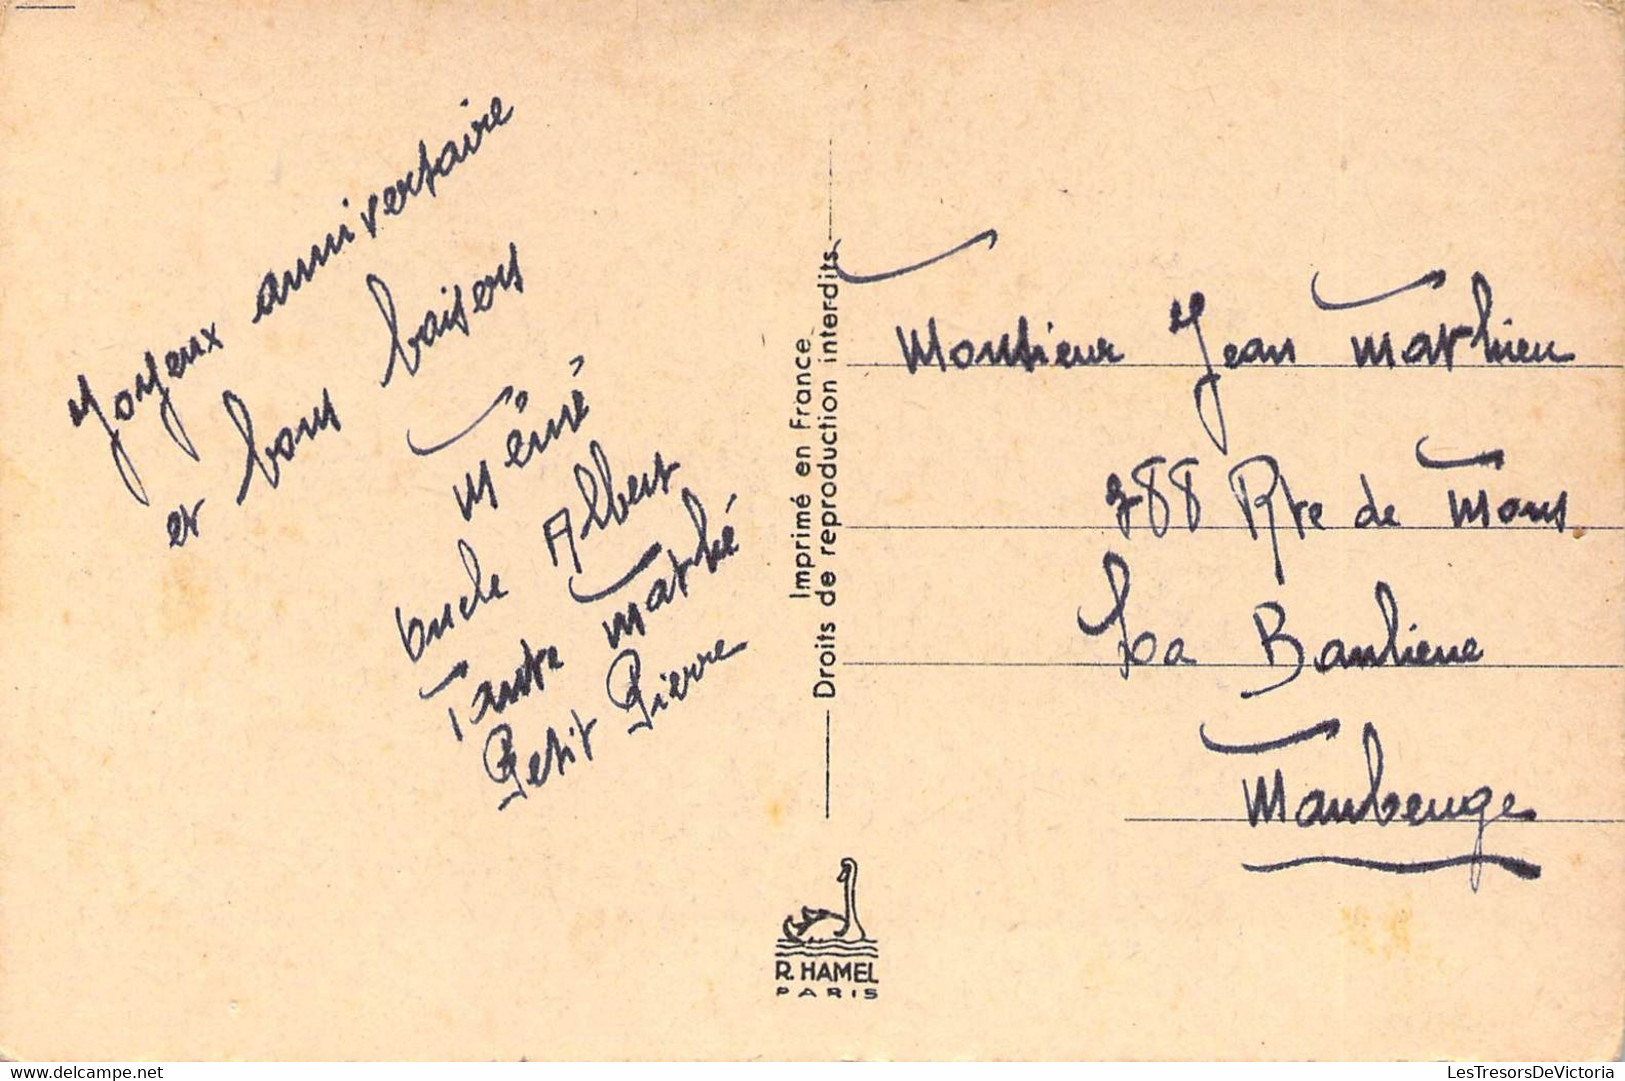 Joyeux anniversaire
et bons baisers
Mémé
Oncle Albert
Tante Marthé
Petit Pierre
Imprimé en France
Droits de reproduction interdits
Monsieur Jean Mathieu
288 Rte de Mons
La Banlieue
Maubeuge
R. HAMEL
PARIS
delcampe.net
LesTresorsDeVictoria